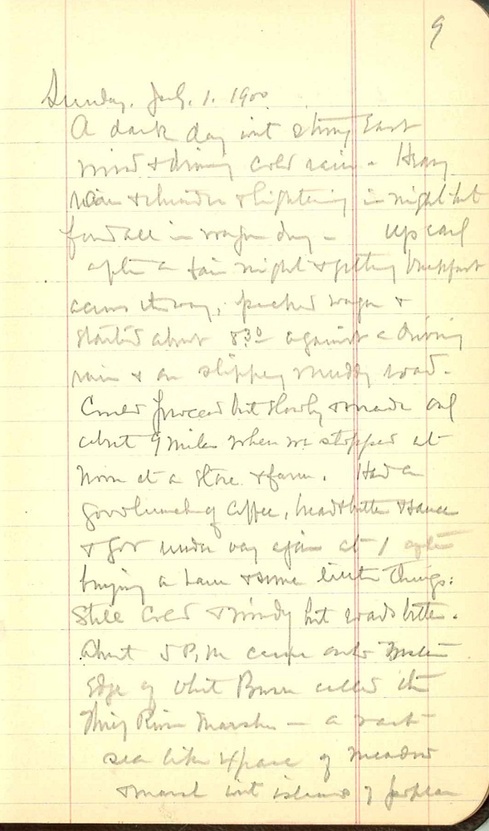 9
Sunday, July, 1. 1900
A dark day with strong East
wind & driving cold rain. Heavy
rain & thunder & lightening in night but
found all in wagon dry - up early
after a fair night & getting breakfast
across the way, packed wagon &
started about 8³⁰ against a driving
rain & on slippery muddy road.
Could proceed but slowly & made only
about 9 miles when we stopped at
noon at a store & farm. Had a
good lunch of coffee, bread & butter & sauce
& got under way again at 1 after
buying a ham & some little things:
Still cold & windy but roads better.
About 5 P.M. came onto
Edge of what called the
River Marshes - a vast
sea like expanse of meadow
& marsh with islands of poplar